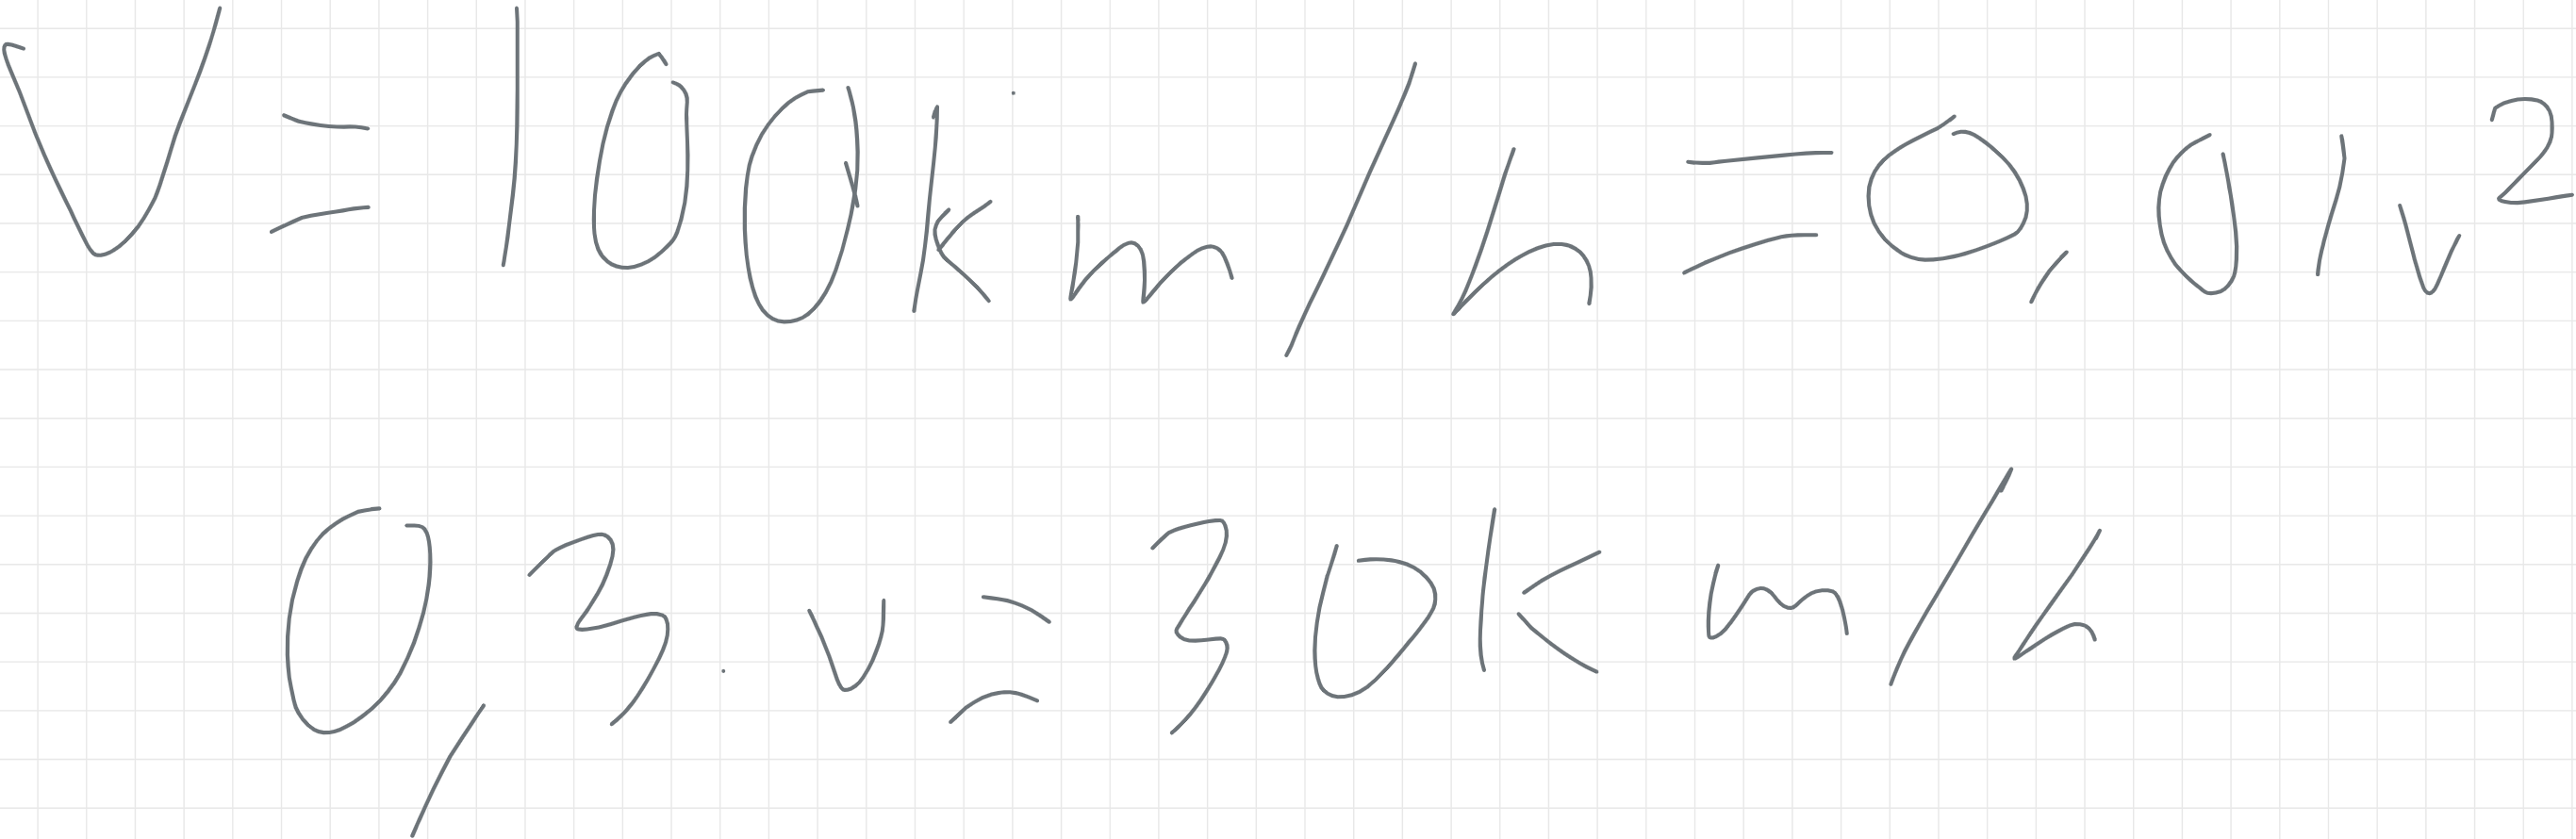 V = 100km/h = 0,01v²
0,3 · v = 30km/h